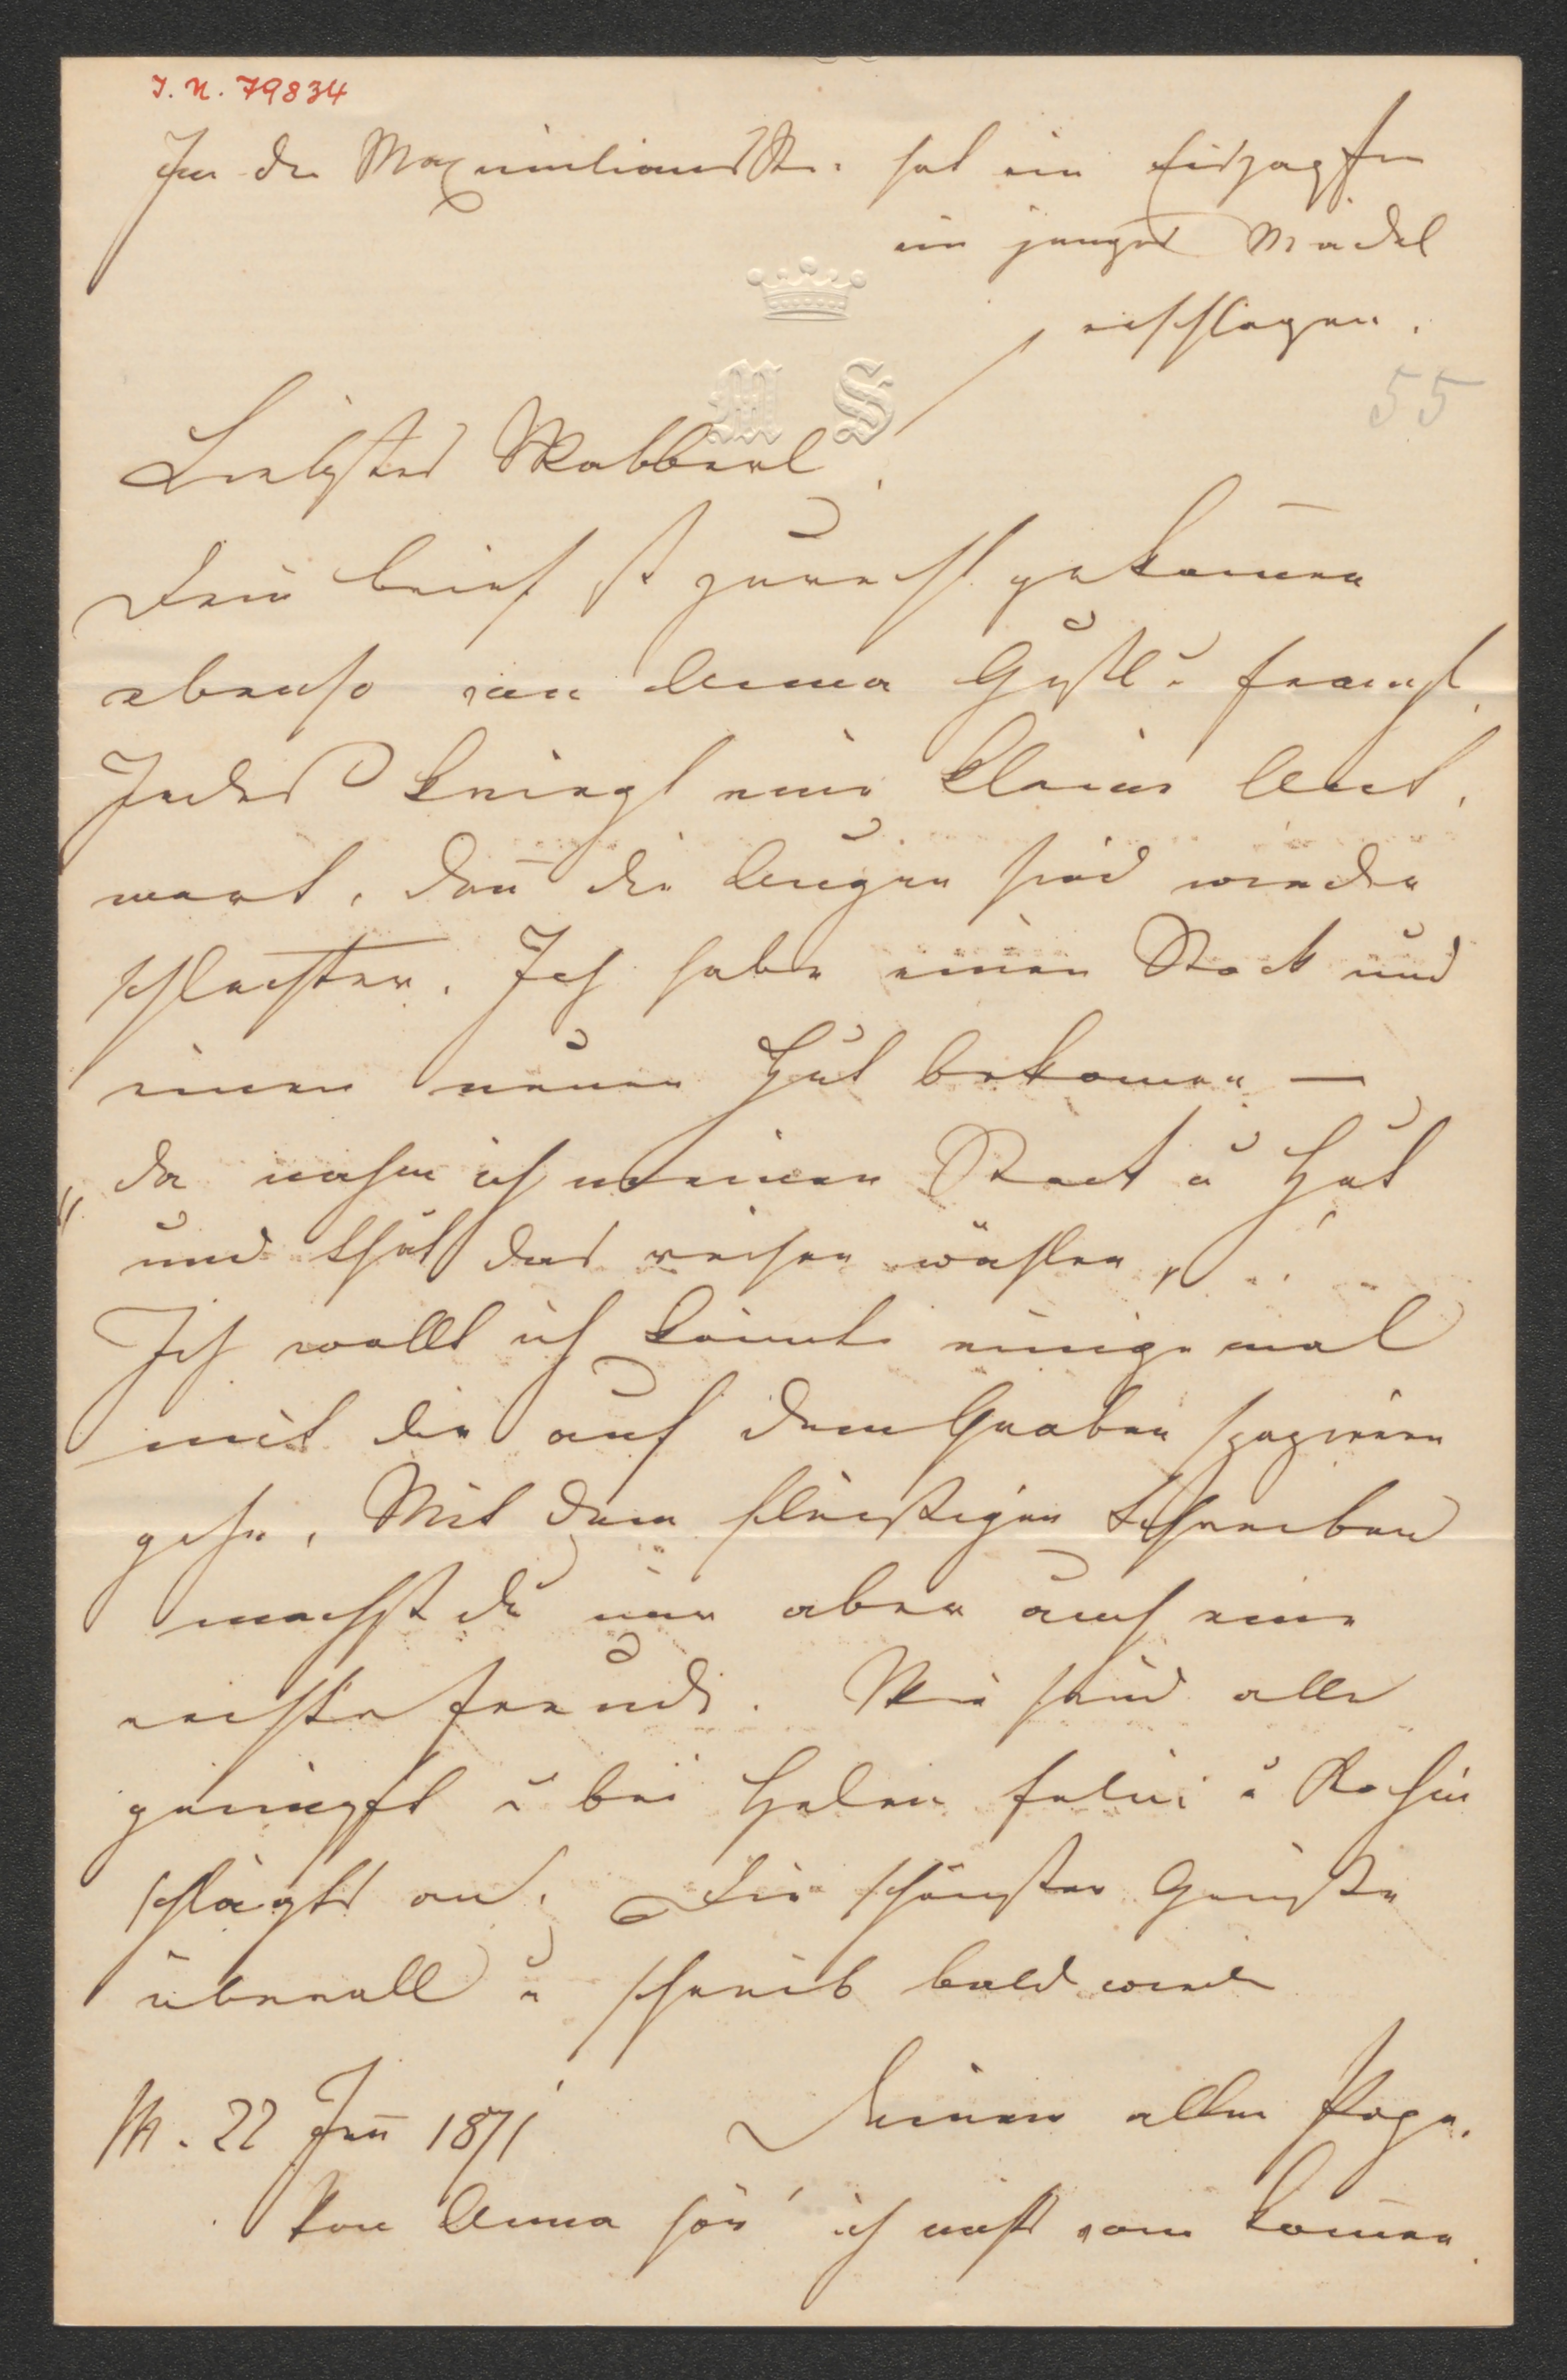 I. N. 79834
In der Maximilianstr. hat ein Eiszapfen
ein junges Mädel
erschlagen.
55
M S
Liebstes Wabberl
Dein brief ist zurecht gekommen
ebenso von Anna Gustl u
Jedes kriegt eine kleine Ant,
wort, denn die Augen sind wieder
schlechter. Ich habe einen Stock und
einen neuen Hut bekommen —
„da nahm ich meinen Stock u Hut
und that das reisen wählen„
Ich wollt ich könnte einige mal
mit dir auf dem Graben spazieren
gehn. Mit dem fleißigen Schreiben
machst du mir aber auch eine
rechte freude. Wir sind alle
geimpft u bei Helen u
schlägts an. Die schönsten Grüße
überall u schreib bald wieder
M. 22 Jan 1871
Deinem alten
Von Anna hör' ich nichts vom kommen.